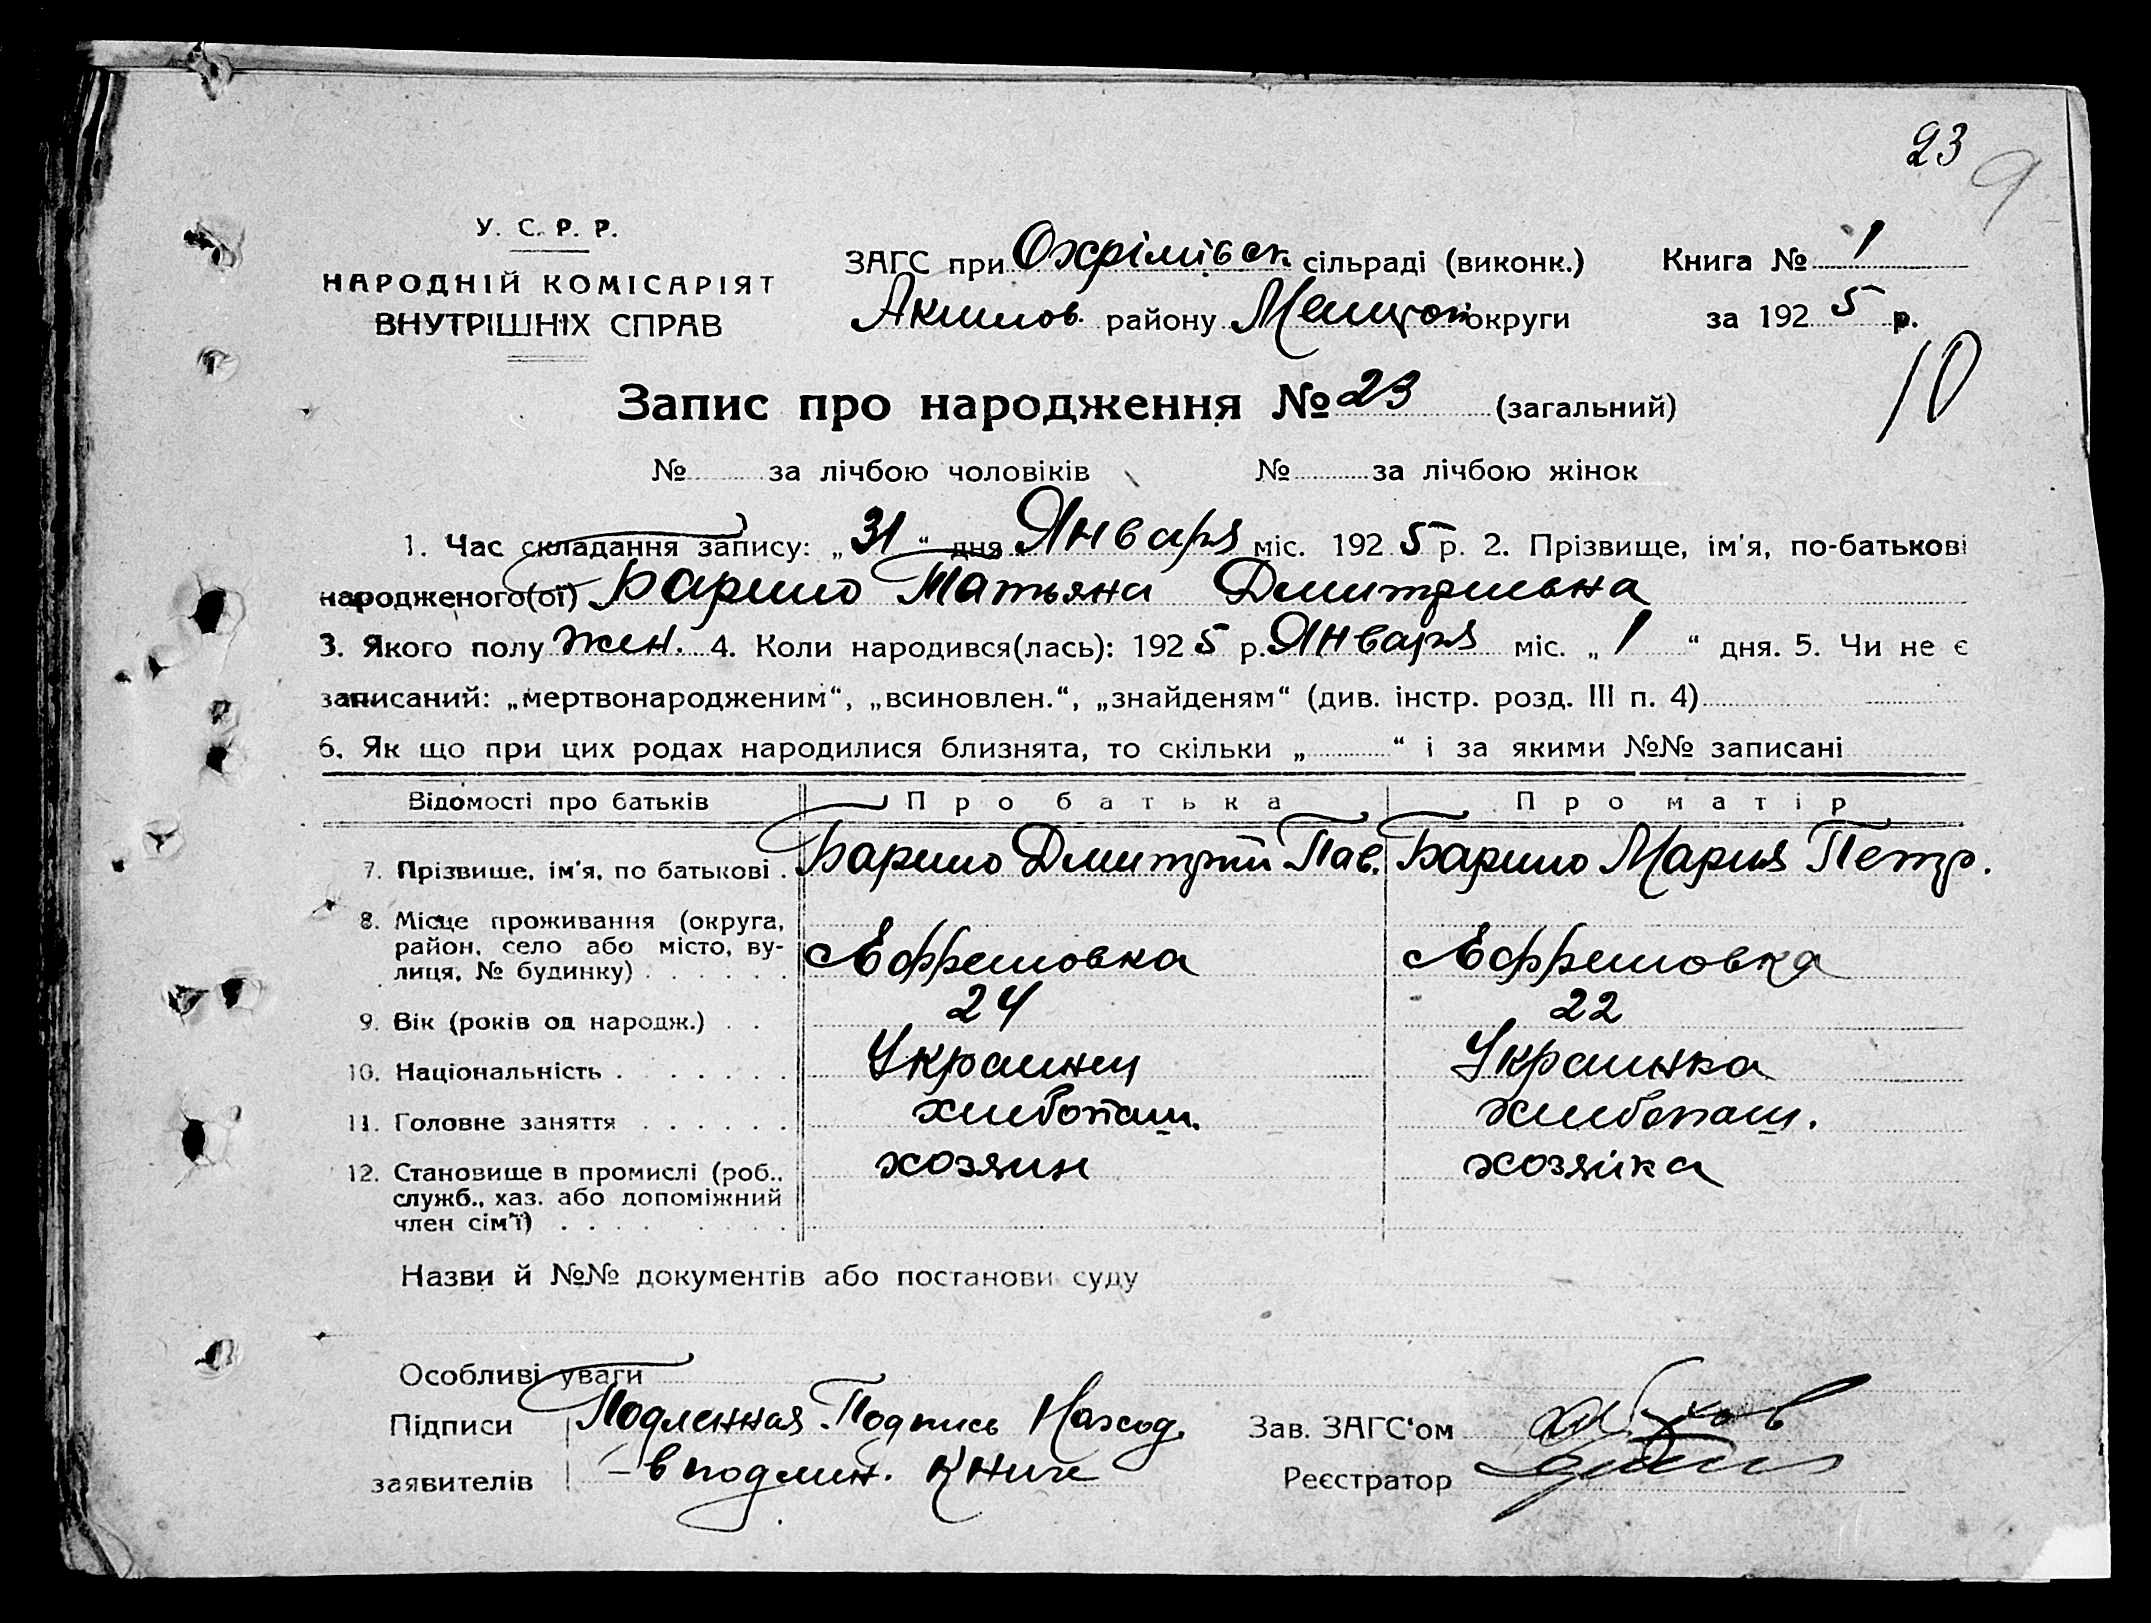 23
9
У. С. Р. Р.
НАРОДНІЙ КОМІСАРІЯТ
ВНУТРІШНІХ СПРАВ
ЗАГС при Охрімівск сільраді (виконк.) Книга № 1
Акимов. району Мелитоп округи за 1925 р.
10
Запис про народження № 23 (загальний)
№ за лічбою чоловіків № за лічбою жінок
1. Час складання запису: „31“ дня Января міс. 1925 р. 2. Прізвище, ім'я, по-батькові
народженого(ої) Барило Татьяна Дмитриевна
3. Якого полу жен. 4. Коли народився(лась): 1925 р. Января міс. „1“ дня. 5. Чи не є
записаний: „мертвонародженим“, „всиновлен.“, „знайденям“ (див. інстр. розд. III п. 4)
6. Як що при цих родах народилися близнята, то скільки „ “ і за якими №№ записані
Відомості про батьків Про батька Про матір
7. Прізвище, ім'я, по батькові . Барило Дмитрий Пав. Барило Мария Петр.
8. Місце проживання (округа,
район, село або місто, ву-
лиця, № будинку) . . . . . . Ефремовка Ефремовка
9. Вік (років од народж.) . . 24 22
10. Національність . . . . . . . Украинец Украинка
11. Головне заняття . . . . . . хлибопаш. хлибопаш.
12. Становище в промислі (роб., хозяин хозяйка
служб., хаз. або допоміжний
член сім'ї) . . . . . . . .
Назви й №№ документів або постанови суду
Особливі уваги
Підписи Подленная Подпись Наход. Зав. ЗАГС'ом
заявителів - в подлин. Книге Реєстратор